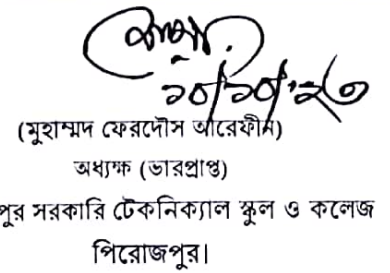 ১০/১০/২৩
(মুহাম্মদ ফেরদৌস আরেফীন)
অধ্যক্ষ (ভারপ্রাপ্ত)
পুর সরকারি টেকনিক্যাল স্কুল ও কলেজ
পিরোজপুর।